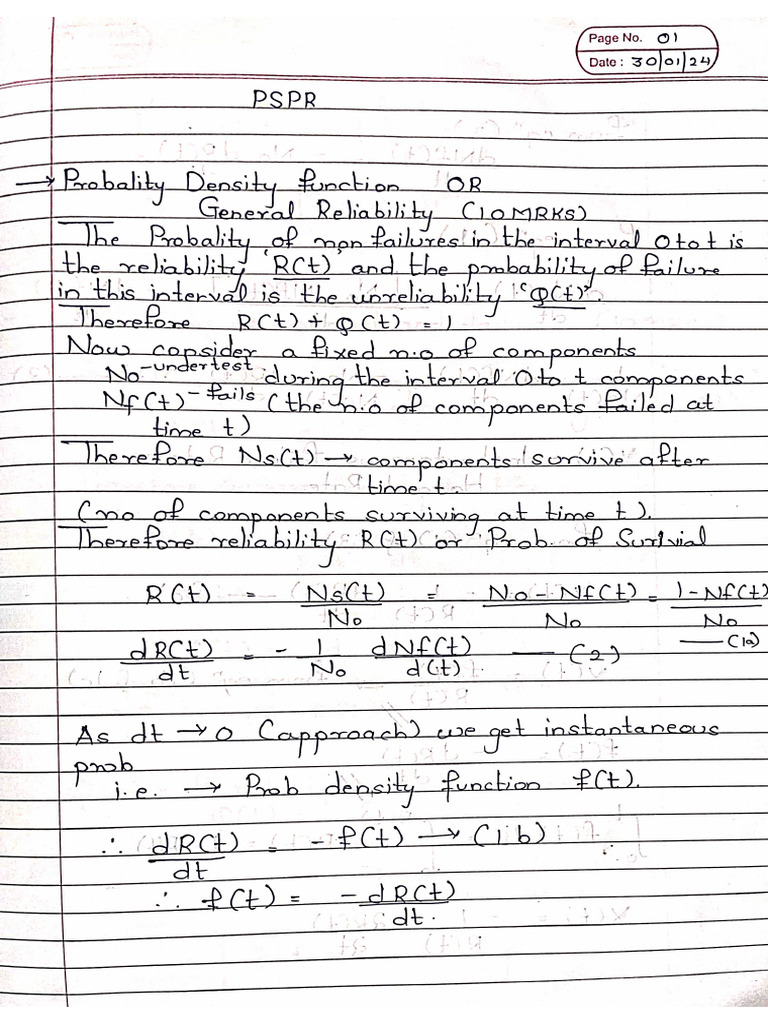 Page No. 01
Date: 30/01/24
PSPR
→ Probality Density function OR
General Reliability (10 MRKS)
The Probality of non failures in the interval 0 to t is
the reliability 'R(t)' and the probability of failure
in this interval is the unreliability 'Q(t)'.
Therefore R(t) + Q(t) = 1
Now consider a fixed n.o of components
No -under test during the interval 0 to t components
Nf(t) - fails (the n.o of components failed at
time t)
Therefore Ns(t) → components survive after
time t.
(no of components surviving at time t).
Therefore reliability R(t) or Prob. of Survival
R(t) = Ns(t)/No = No - Nf(t)/No = 1 - Nf(t)/No — (1a)
dR(t)/dt = - 1/No dNf(t)/d(t) — (2)
As dt → 0 (approach) we get instantaneous
prob
i.e. → Prob density function f(t).
∴ dR(t)/dt = - f(t) → (1b)
∴ f(t) = - dR(t)/dt.